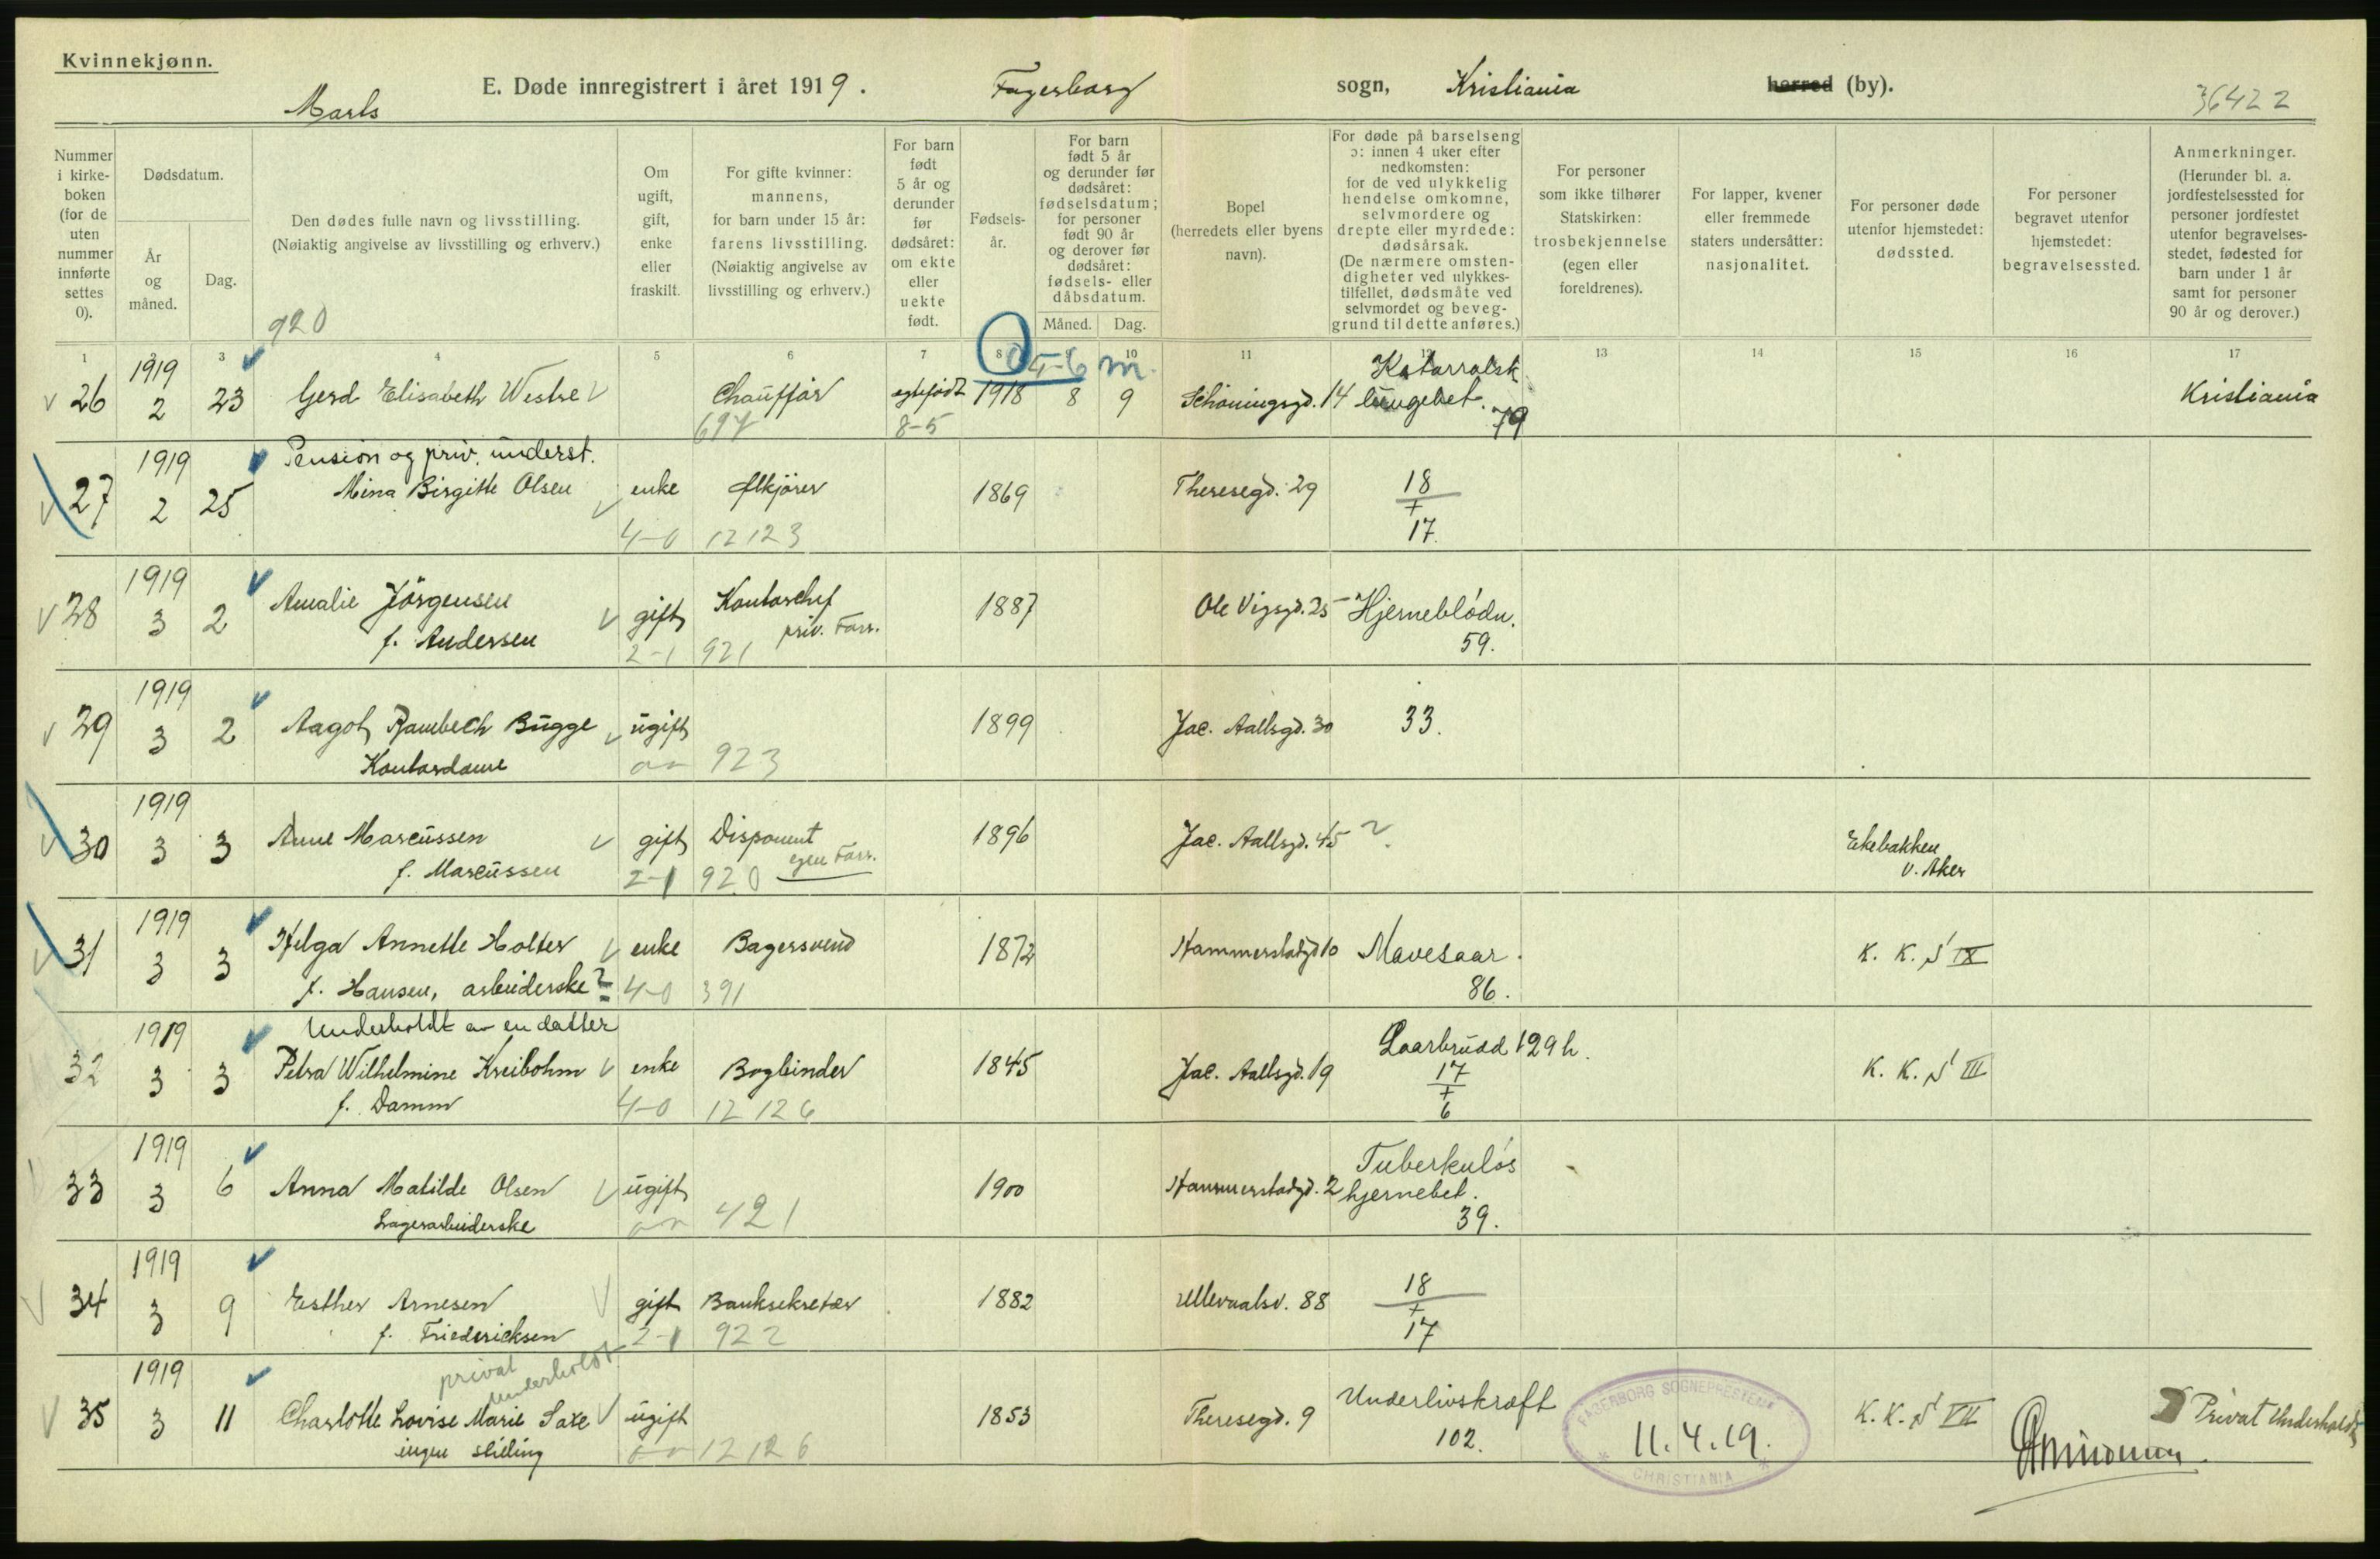 Kvinnekjønn.
E. Døde innregistrert i året 1919. Fagerborg sogn, Kristiania herred (by).
Marts
36422
Nummer i kirkeboken (for de uten nummer innførte settes 0).
Dødsdatum.
År og måned.
Dag.
Den dødes fulle navn og livsstilling.
(Nøiaktig angivelse av livsstilling og erhverv.)
920
Om ugift, gift, enke eller fraskilt.
For gifte kvinner: mannens, for barn under 15 år: farens livsstilling. (Nøiaktig angivelse av livsstilling og erhverv.)
For barn født 5 år og derunder før dødsåret: om ekte eller uekte født.
Fødselsår.
For barn født 5 år og derunder før dødsåret: fødselsdatum; for personer født 90 år og derover før dødsåret: fødsels- eller dåbsdatum.
Måned. Dag.
Bopel (herredets eller byens navn).
For døde på barselseng ɔ: innen 4 uker efter nedkomsten: for de ved ulykkelig hendelse omkomne, selvmordere og drepte eller myrdede: dødsårsak. (De nærmere omstendigheter ved ulykkestilfellet, dødsmåte ved selvmordet og beveggrund til dette anføres.)
For personer som ikke tilhører Statskirken: trosbekjennelse (egen eller foreldrenes).
For lapper, kvener eller fremmede staters undersåtter: nasjonalitet.
For personer døde utenfor hjemstedet: dødssted.
For personer begravet utenfor hjemstedet: begravelsessted.
Anmerkninger. (Herunder bl. a. jordfestelsessted for personer jordfestet utenfor begravelsesstedet, fødested for barn under 1 år samt for personer 90 år og derover.)
1 2 3 4 5 6 7 8 9 10 11 12 13 14 15 16 17
0 5-6 m.
26 1919 2 23 Gerd Elisabeth Westre Chauffør 697 egtefødt 8-5 1918 8 9 Schøningsgd. 14 Katarralsk lungebet. 79 Kristiania
Pension og priv. underst.
27 1919 2 25 Mina Birgitte Olsen enke 4-0 Ølkjører 12123 1869 Theresegd. 29 18 + 17.
28 1919 3 2 Amalie Jörgensen f. Andersen gift 2-1 Kontorchef priv. Forr. 921 1887 Ole Vigsgd. 25 Hjerneblödn. 59.
29 1919 3 2 Aagot Rambech Bugge Kontordame ugift 923 1899 Jac. Aallsgd. 30 33.
30 1919 3 3 Anne Marcussen f. Marcussen gift 2-1 Disponent egen Forr. 920 1896 Jac. Aallsgd. 45 ? Ekebakken v. Aker
31 1919 3 3 Helga Annette Holter f. Hansen, arbeiderske? enke 4-0 Bagersvend 391 1872 Hammerstadgd 10 Mavesaar. 86. K. K. S IX
Underholdt av en datter
32 1919 3 3 Petra Wilhelmine Kreibohm f. Damm enke 4-0 Bogbinder 12126 1845 Jac. Aallsgd. 19 Laarbrudd 129 h. 17 + 6 K. K. S III
33 1919 3 6 Anna Matilde Olsen Lagerarbeiderske ugift 421 1900 Hammerstadgd. 2 Tuberkuløs hjernebet. 39.
34 1919 3 9 Esther Arnesen f. Friedericksen gift 2-1 Banksekretær 922 1882 Ullevaalsv. 88 18 + 17
privat underholdt
35 1919 3 11 Charlotte Lovise Marie Saxe ingen stilling ugift 12126 1853 Theresegd. 9 Underlivskræft 102. K. K. S VII Privat Underholdt
FAGERBORG SOGNEPRESTEMB
11.4.19.
CHRISTIANIA